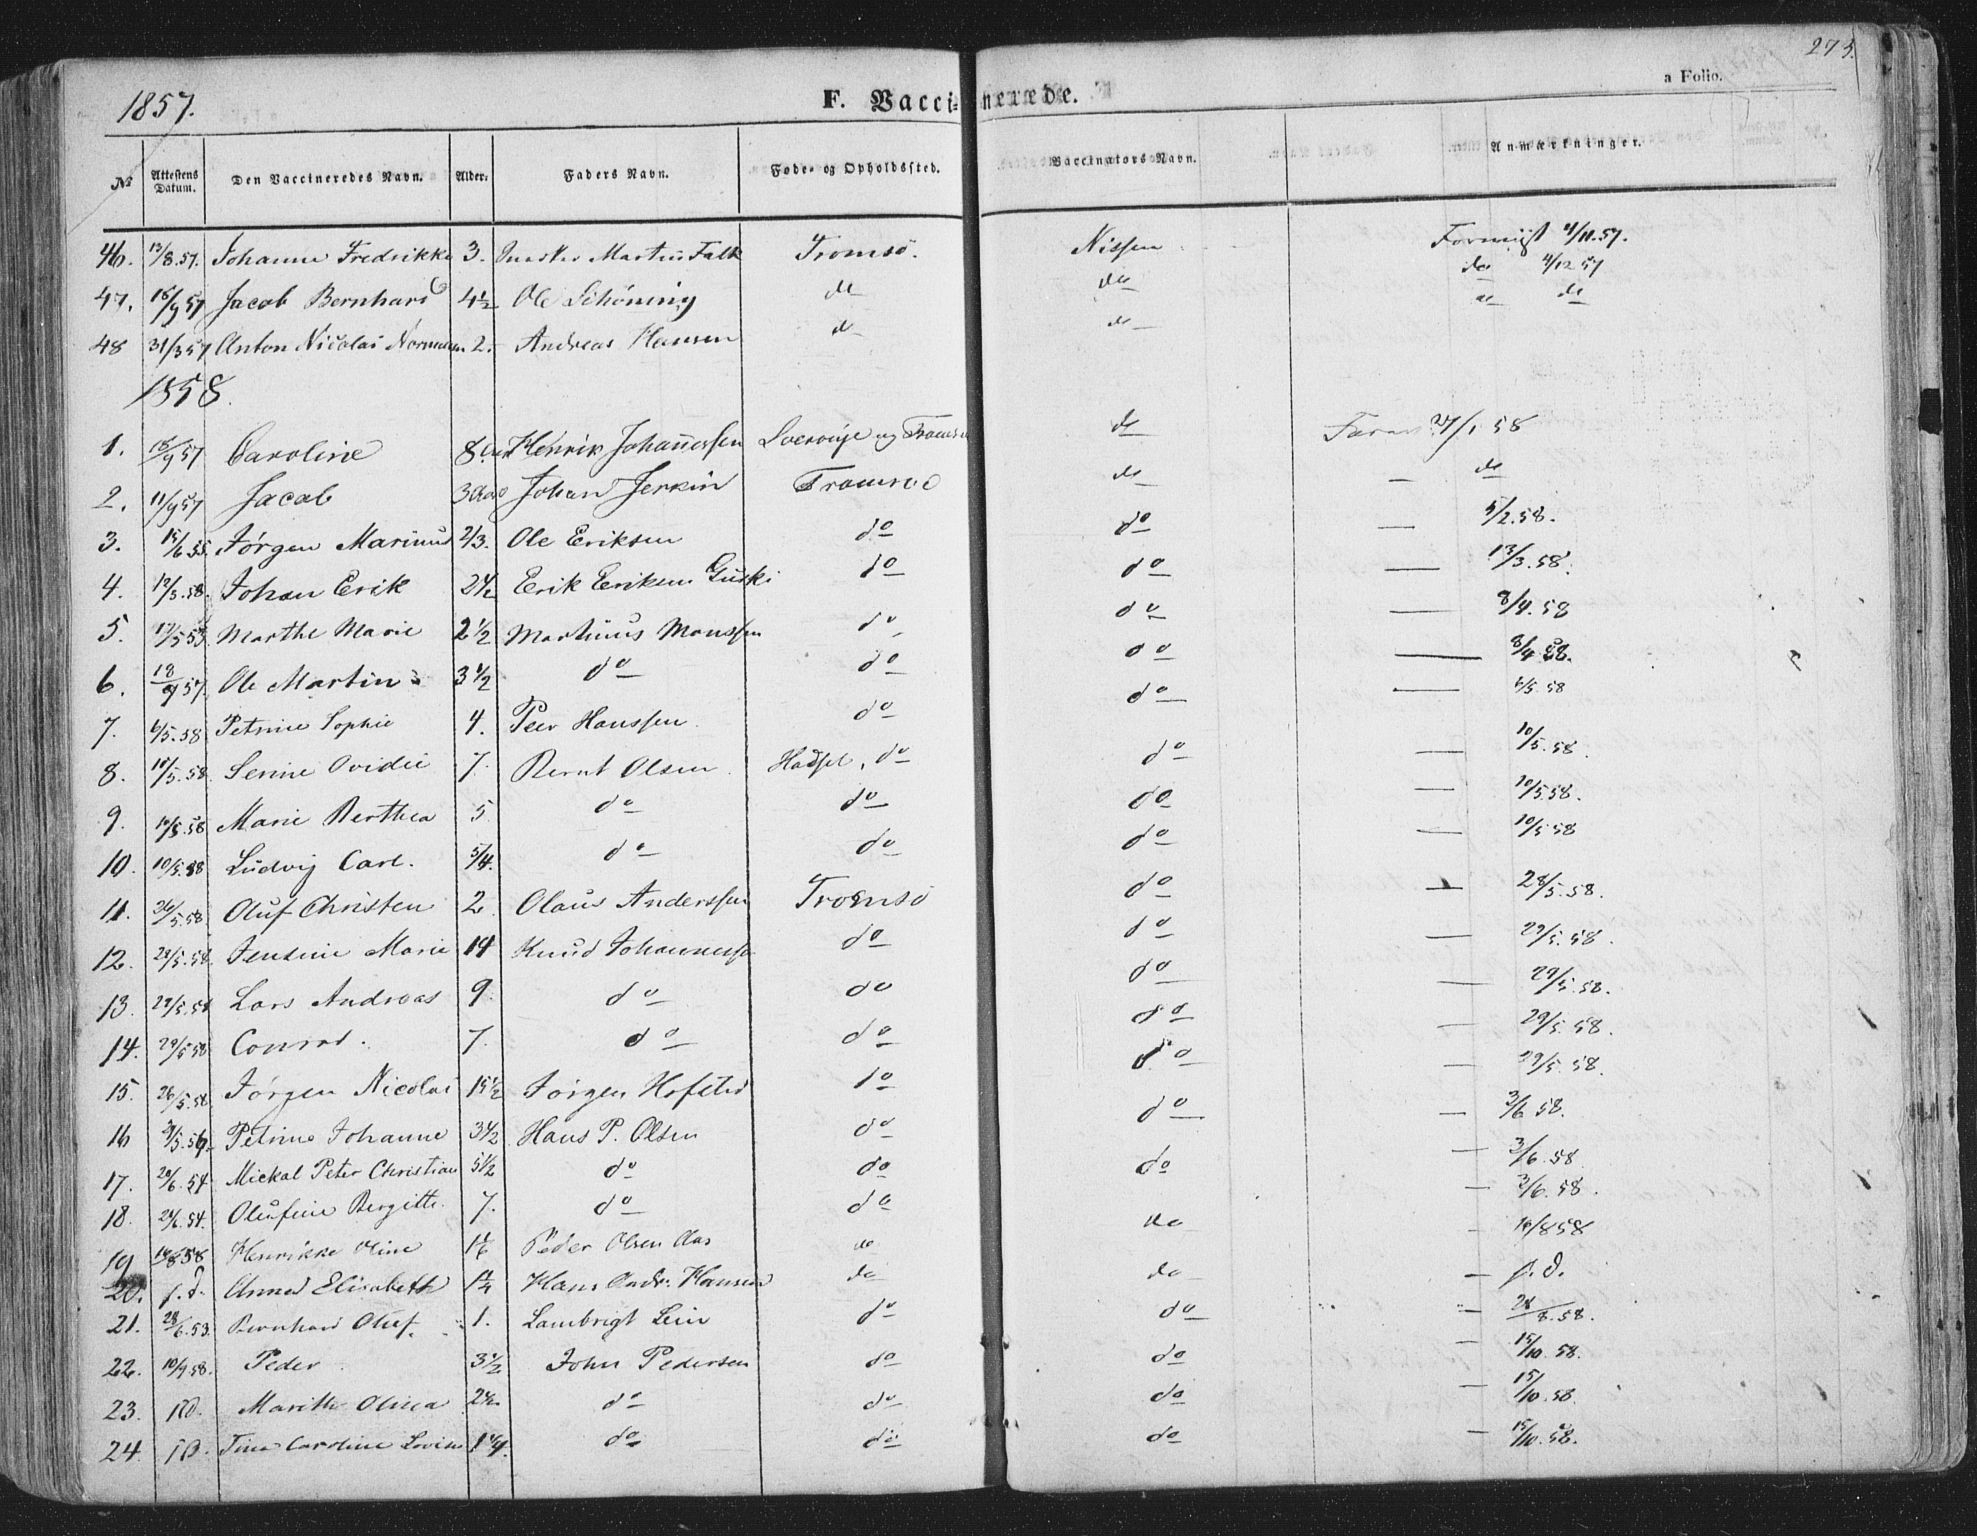 273.
1857. F. Vaccinerede. a Folio.
№ Attestens Datum. Den Vaccineredes Navn. Alder: Faders Navn. Føde- og Opholdssted. Vaccinators Navn. Anmærkninger.
46. 13/8.57. Johanne Fredrikke 3. Martin Falk Tromsö. Nissen 4/11.57.
47. 16/9 57 Jacob Bernhard 4½ Ole Schöning do do do 4/12 57
48 31/3 57 Anton Nicolai Normann 2. Andreas Hansen do do do do
1858.
1. 15/9 57 Caroline 8 Henrik Johannessen og Tromsö do 27/1 58
2. 11/9 57 Jacob 3 Johan Tromsöe do — do
3. 15/6 55. Jörgen Marinus 2/3. Ole Eriksen do do — 5/2.58.
4. 12/3.58. Johan Erik 2½ Erik Eriksen do do — 13/3.58.
5. 17/5 53 Marthe Marie 2½ Martinus Monssen do do — 8/4.58
6. 18/9 57. Ole Martin 3½ do do do — 8/4.58.
7. 6/5.58 Petrine Sophie 4. Peer Hanssen do do — 6/5.58
8. 10/5.58. Serine Ovidie 7. Bernt Olsen Hadsel, do do — 10/5.58.
9. 10/5.58 Marie Berthea 5 do do do — 10/5.58.
10. 10/5.58 Ludvig Carl. 5/4. do do do — 10/5 58
11. 26/5.58 Oluf Christen 2 Olaus Anderssen Tromsö do — 28/5.58.
12. 28/5.58. Jensine Marie 14 Knud Johannessen do do — 29/5.58.
13. 29/5.58 Lars Andreas 9. do do do — 29/5.58.
14. 29/5 58 Conrad. 7. do do do — 29/5.58.
15. 26/5.58. Jörgen Nicolai 15½ Jörgen Hofsted do do — 29/5.58.
16 Petrine Johanne 3½ Hans P. Olsen do do — 3/6 58.
17. 20/6.54 Mickal Peter Christian 5½ do do do — 3/6.58
18. 24/6.54. Olufine Bergitte. 7. do do — 3/6.58.
19 16/8 58 Henrikke Oline 1 1/6 Peder Olsen Aas do do - 16/8 58
20. s. d. Anna Elisabeth 1¼ Hans Andr. Hansen do do — s. d.
21. 28/6.53. Bernhard Oluf. 1. Lambrigt Lein do do — 28/8.58.
22. 10/9 58. Peder 3½ John Pedersen do do — 15/10.58.
23. Marithe Olinea 2½ do do do — 15/10.58
24. Tina Caroline Lovise 1¼. do do do — 15/10.58.